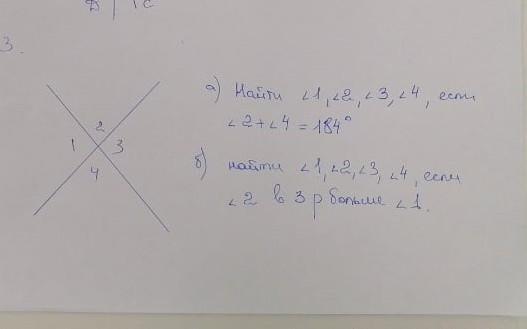 Д | 1С
3.
а) Найти ∠1, ∠2, ∠3, ∠4, если
∠2+∠4 = 184°
2
1 3
4
б) найти ∠1, ∠2, ∠3, ∠4, если
∠2 в 3 р больше ∠1.